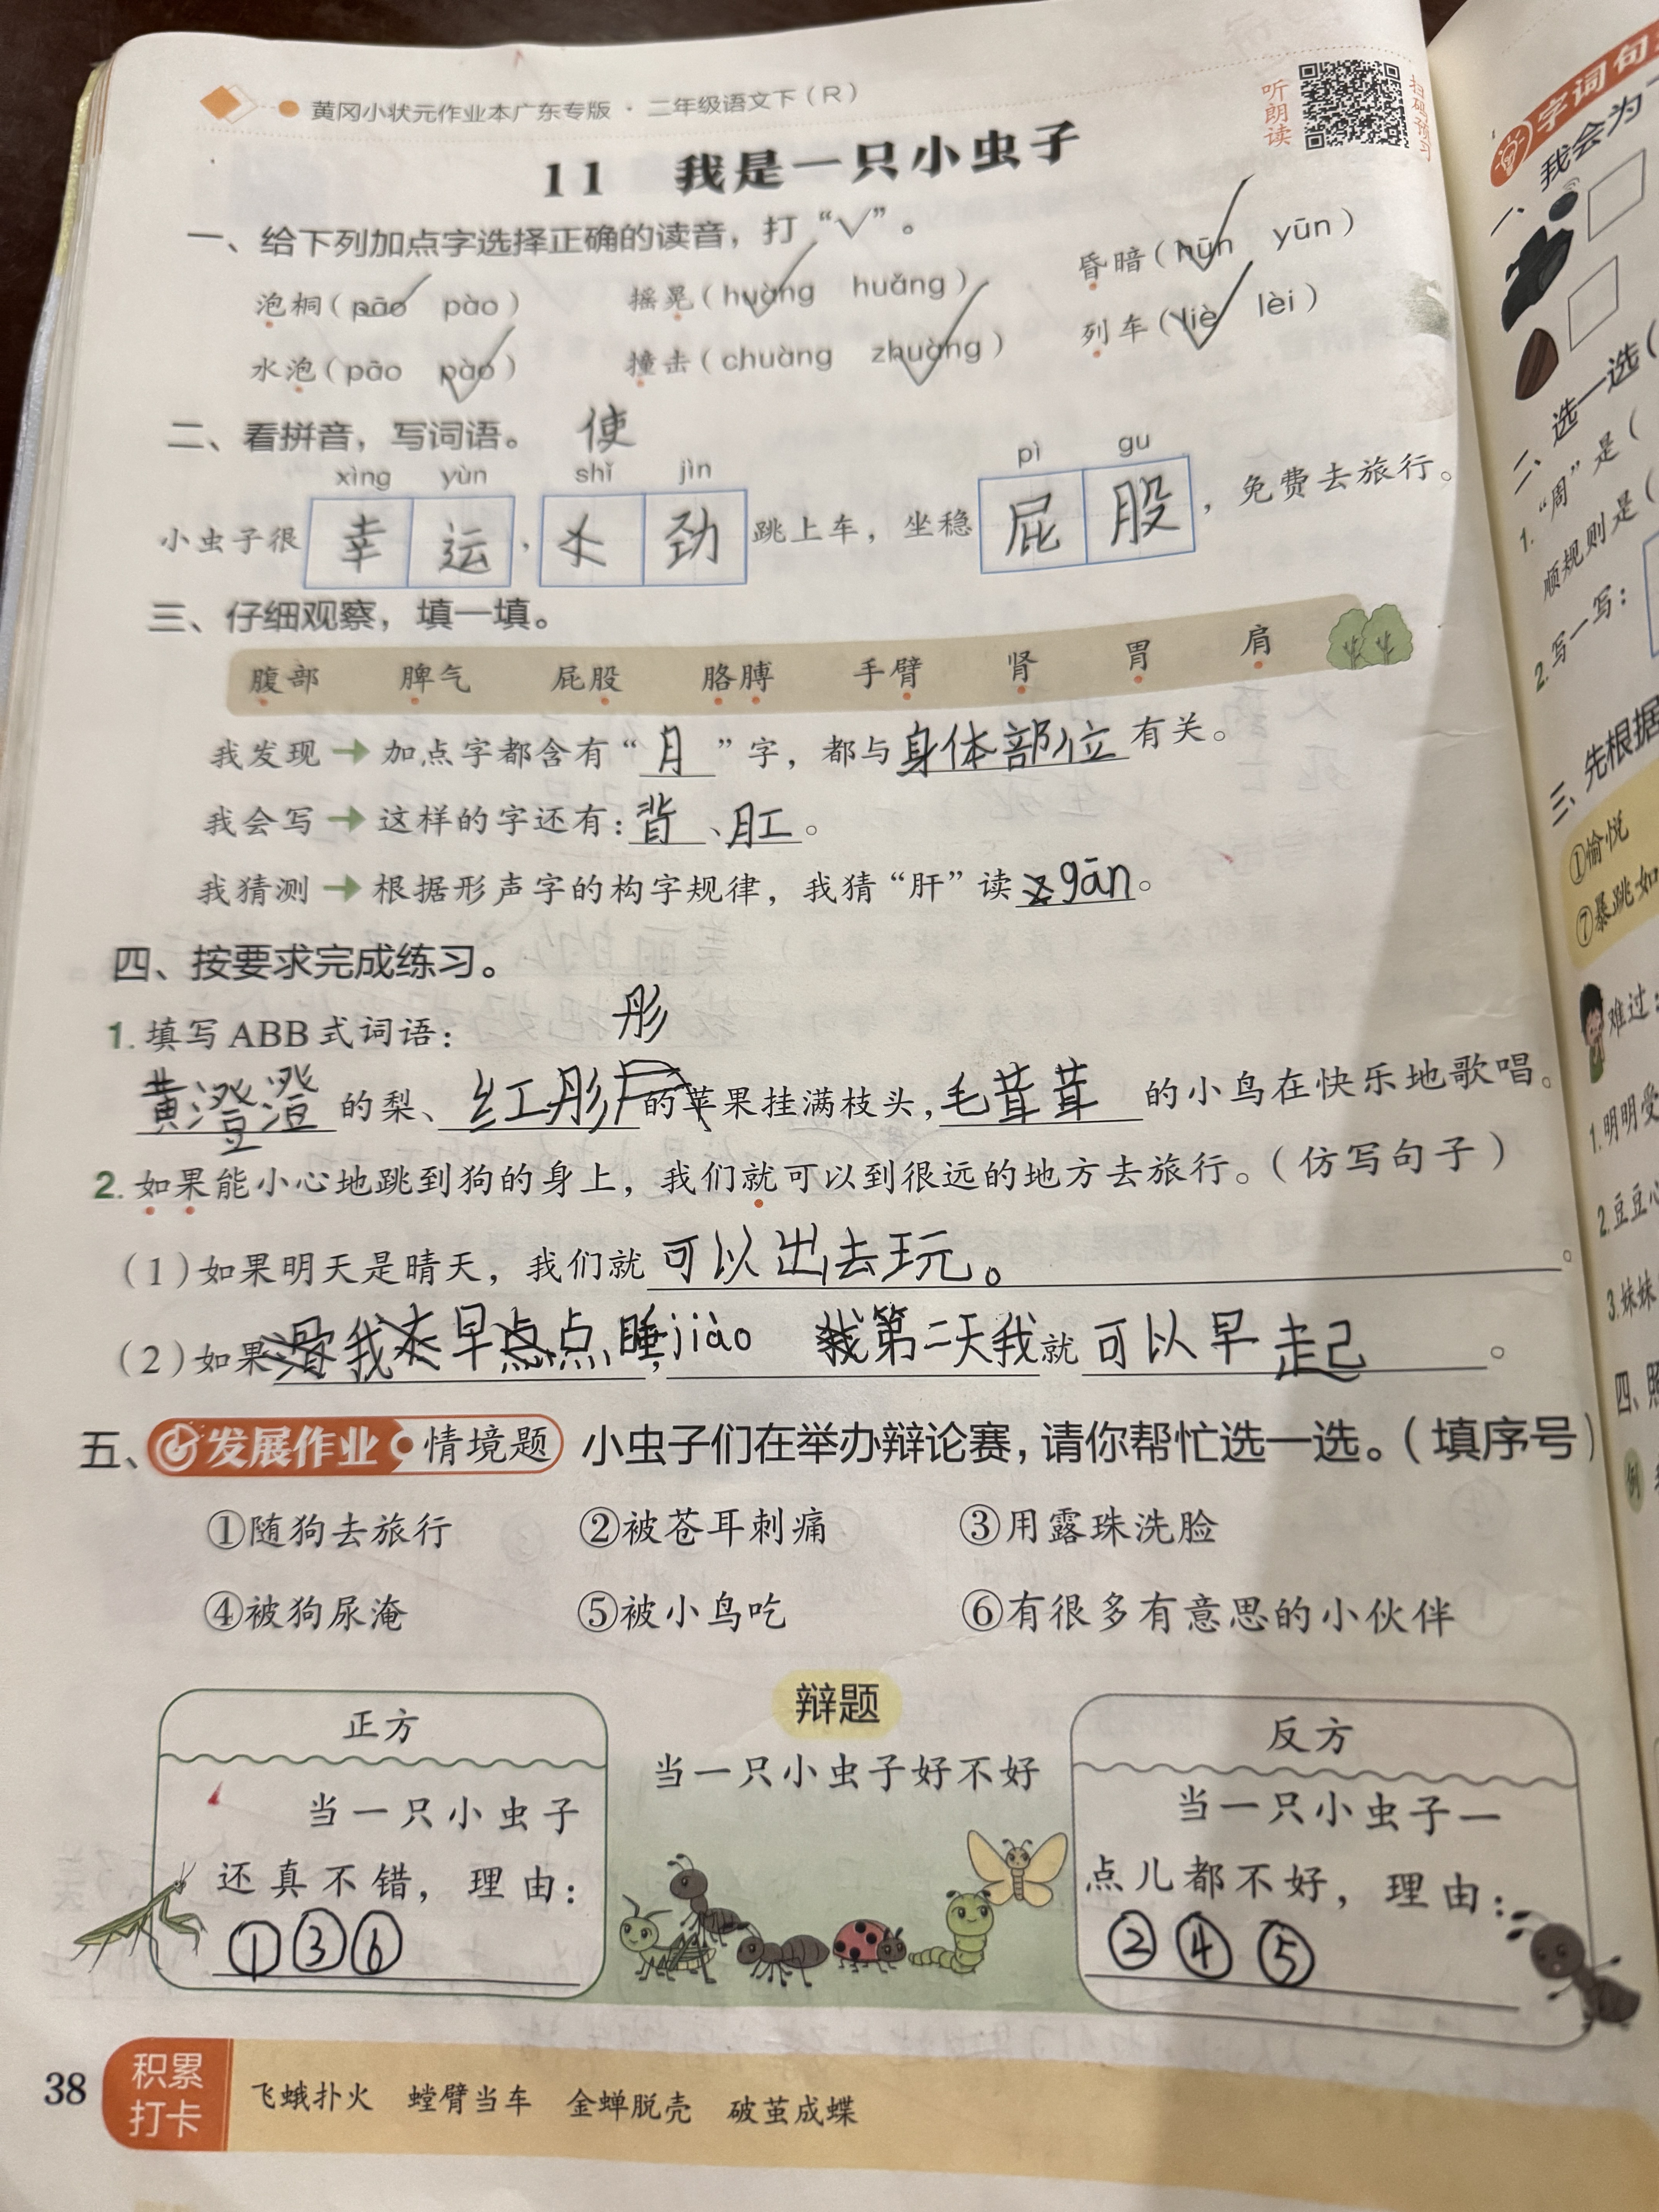 黄冈小状元作业本广东专版·二年级语文下（R）
听朗读
11 我是一只小虫子
一、给下列加点字选择正确的读音，打“√”。
泡桐（pāo pào） 摇晃（huàng huǎng） 昏暗（hūn yūn）
水泡（pāo pào） 撞击（chuàng zhuàng） 列车（liè lèi）
二、看拼音，写词语。 使
xìng yùn shǐ jìn pì gu
小虫子很幸运，劲跳上车，坐稳屁股，免费去旅行。
三、仔细观察，填一填。
腹部 脾气 屁股 胳膊 手臂 肾 胃 肩
我发现→加点字都含有“月”字，都与身体部位有关。
我会写→这样的字还有：背、肛。
我猜测→根据形声字的构字规律，我猜“肝”读gān。
四、按要求完成练习。
1.填写ABB式词语：
彤
黄澄澄的梨、红彤的苹果挂满枝头，毛茸茸的小鸟在快乐地歌唱。
2.如果能小心地跳到狗的身上，我们就可以到很远的地方去旅行。（仿写句子）
（1）如果明天是晴天，我们就可以出去玩。。
（2）如果我早点睡jiào，第二天我就可以早起。
五、发展作业 情境题 小虫子们在举办辩论赛，请你帮忙选一选。（填序号）
①随狗去旅行 ②被苍耳刺痛 ③用露珠洗脸
④被狗尿淹 ⑤被小鸟吃 ⑥有很多有意思的小伙伴
辩题
当一只小虫子好不好
正方
当一只小虫子
还真不错，理由：
①③⑥
反方
当一只小虫子一
点儿都不好，理由：
②④⑤
38
积累打卡
飞蛾扑火 螳臂当车 金蝉脱壳 破茧成蝶
字词句
一、我会为
二、选一选（
1.“周”是（
顺规则是（
2.写一写：
三、先根据
①愉悦
⑦暴跳如
难过：
1.明明受
2.豆豆心
3.妹妹
四、照
例